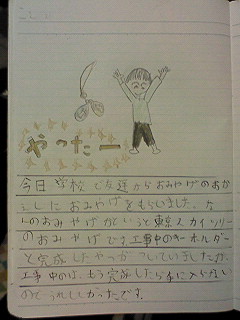 やったー
今日学校で友達からおみやげのおか
しとおみやげをもらいました。
のおみやげがいうと東京スカイツリー
のおみやげです。工事中のキーホルダー
と完成したやつがついていましたが、
工事中のは、もう完成したら手に入らない
のでうれしかったです。